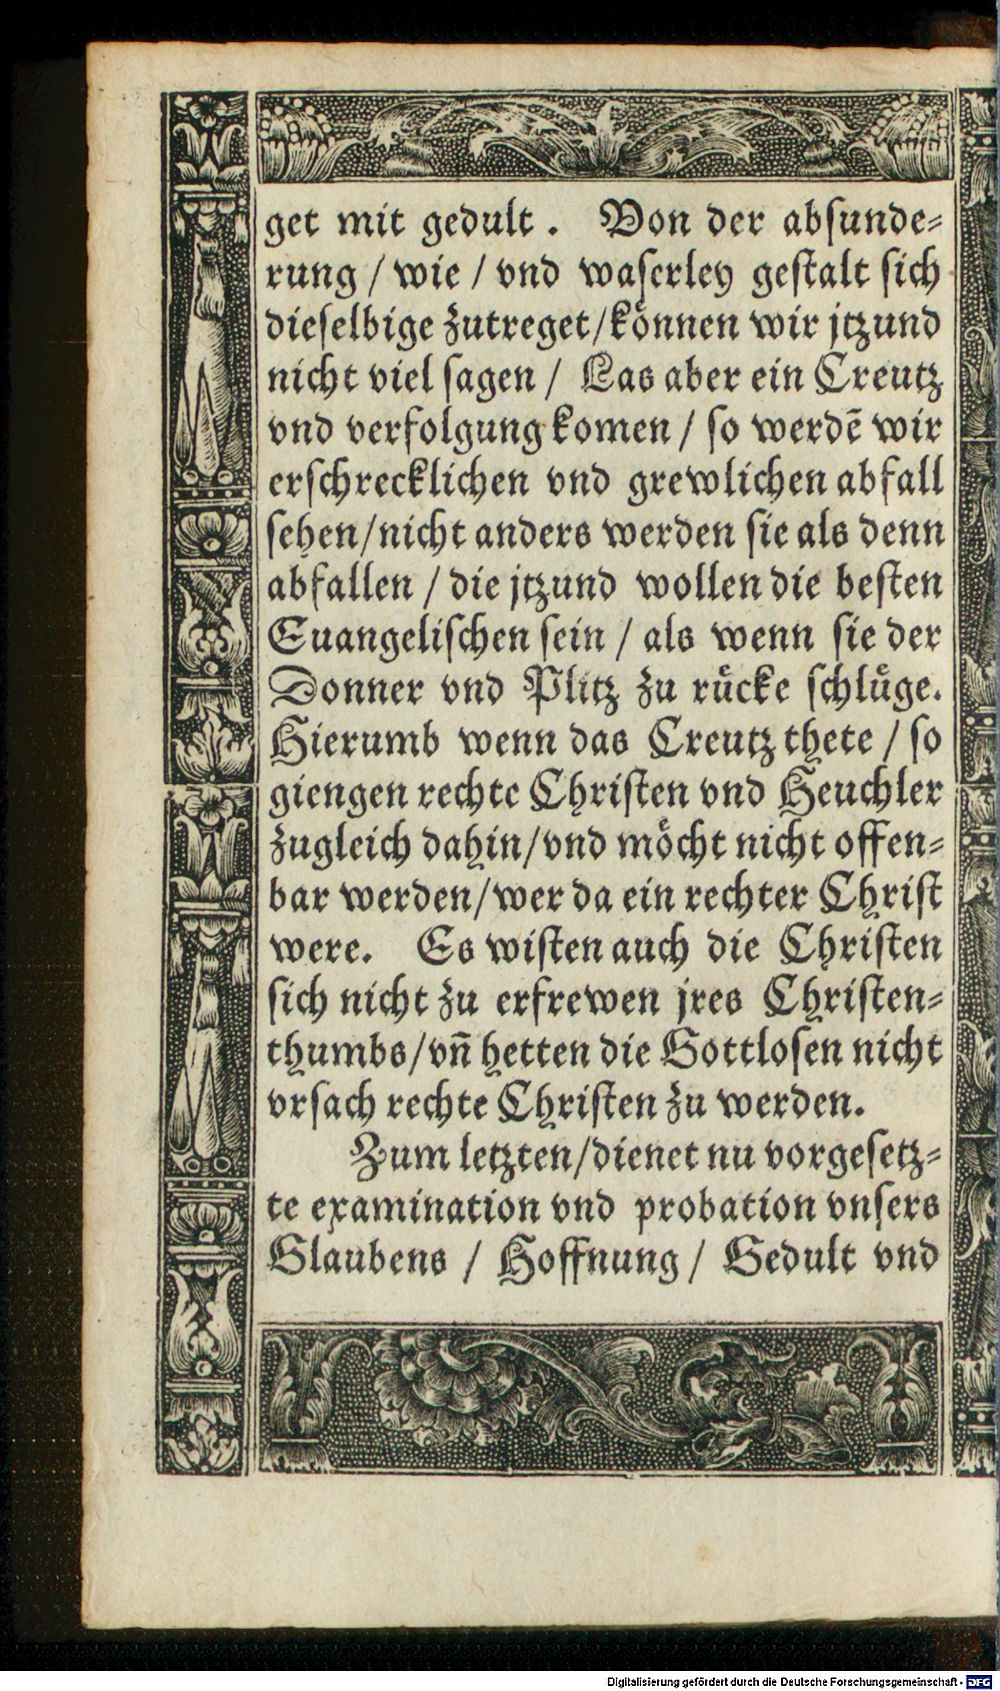 get mit gedult. Von der absunde-
rung / wie / vnd waserley gestalt sich
dieselbige zutreget/können wir jtzund
nicht viel sagen / Las aber ein Creutz
vnd verfolgung komen / so werdē wir
erschrecklichen vnd grewlichen abfall
sehen/nicht anders werden sie als denn
abfallen / die jtzund wollen die besten
Euangelischen sein / als wenn sie der
Donner vnd Plitz zu rücke schlüge.
Hierumb wenn das Creutz thete / so
giengen rechte Christen vnd Heuchler
zugleich dahin/vnd möcht nicht offen-
bar werden/wer da ein rechter Christ
were. Es wisten auch die Christen
sich nicht zu erfrewen jres Christen-
thumbs/vn̄ hetten die Gottlosen nicht
vrsach rechte Christen zu werden.
Zum letzten/dienet nu vorgesetz-
te examination vnd probation vnsers
Glaubens / Hoffnung / Gedult vnd
Digitalisierung gefördert durch die Deutsche Forschungsgemeinschaft - DFG